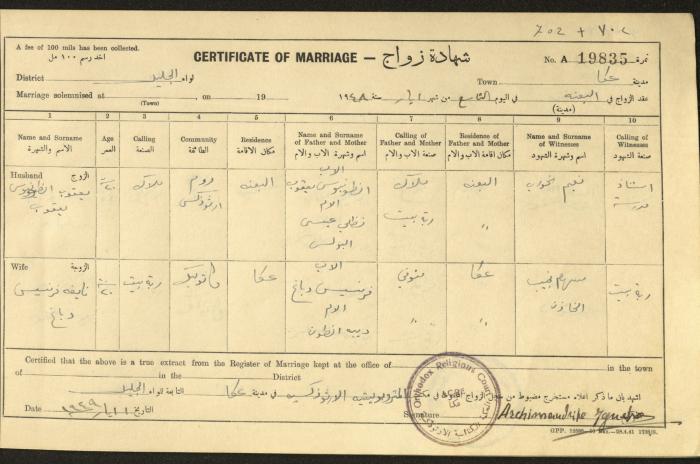 702 + ٧٠٢
A fee of 100 mils has been collected.
اخذ رسم ١٠٠ مل
CERTIFICATE OF MARRIAGE — شهادة زواج
No. A 19835 نمرة
District لواء الجليل
Town مدينة عكا
Marriage solemnised at , on 19
(Town)
عقد الزواج في البعنه في اليوم التاسع من شهر ايار سنة ١٩٤٨
(مدينة)
1 2 3 4 5 6 7 8 9 10
Name and Surname الاسم والشهرة
Age العمر
Calling الصنعة
Community الطائفة
Residence مكان الاقامة
Name and Surname of Father and Mother اسم وشهرة الاب والام
Calling of Father and Mother صنعة الاب والام
Residence of Father and Mother مكان اقامة الاب والام
Name and Surname of Witnesses اسم وشهرة الشهود
Calling of Witnesses صنعة الشهود
Husband الزوج
يعقوب انطونيوس يعقوب
٢٠
ملاك
روم ارثوذكس
البعنه
الاب انطونيوس يعقوب
الام عيسى البولس
ملاك
ربة بيت
البعنه
"
نعيم
استاذ مدرسة
Wife الزوجة
نايفه فرنسيس دباغ
٢٠
ربة بيت
كاثوليك
عكا
الاب فرنسيس دباغ
الام ديبه انطون
متوفي
" "
عكا
"
سهام نجيب الخازن
ربة بيت
Certified that the above is a true extract from the Register of Marriage kept at the office of in the town
of in the District
اشهد بان ما ذكر اعلاه مستخرج مضبوط من سجل الزواج المحفوظ في مكتب المتروبوليتيه الارثوذكسيه في مدينة عكا التابعة للواء الجليل
Date التاريخ
Signature Archimandrite
Orthodox Religious Court
ACRE
عكا
G.P.P.